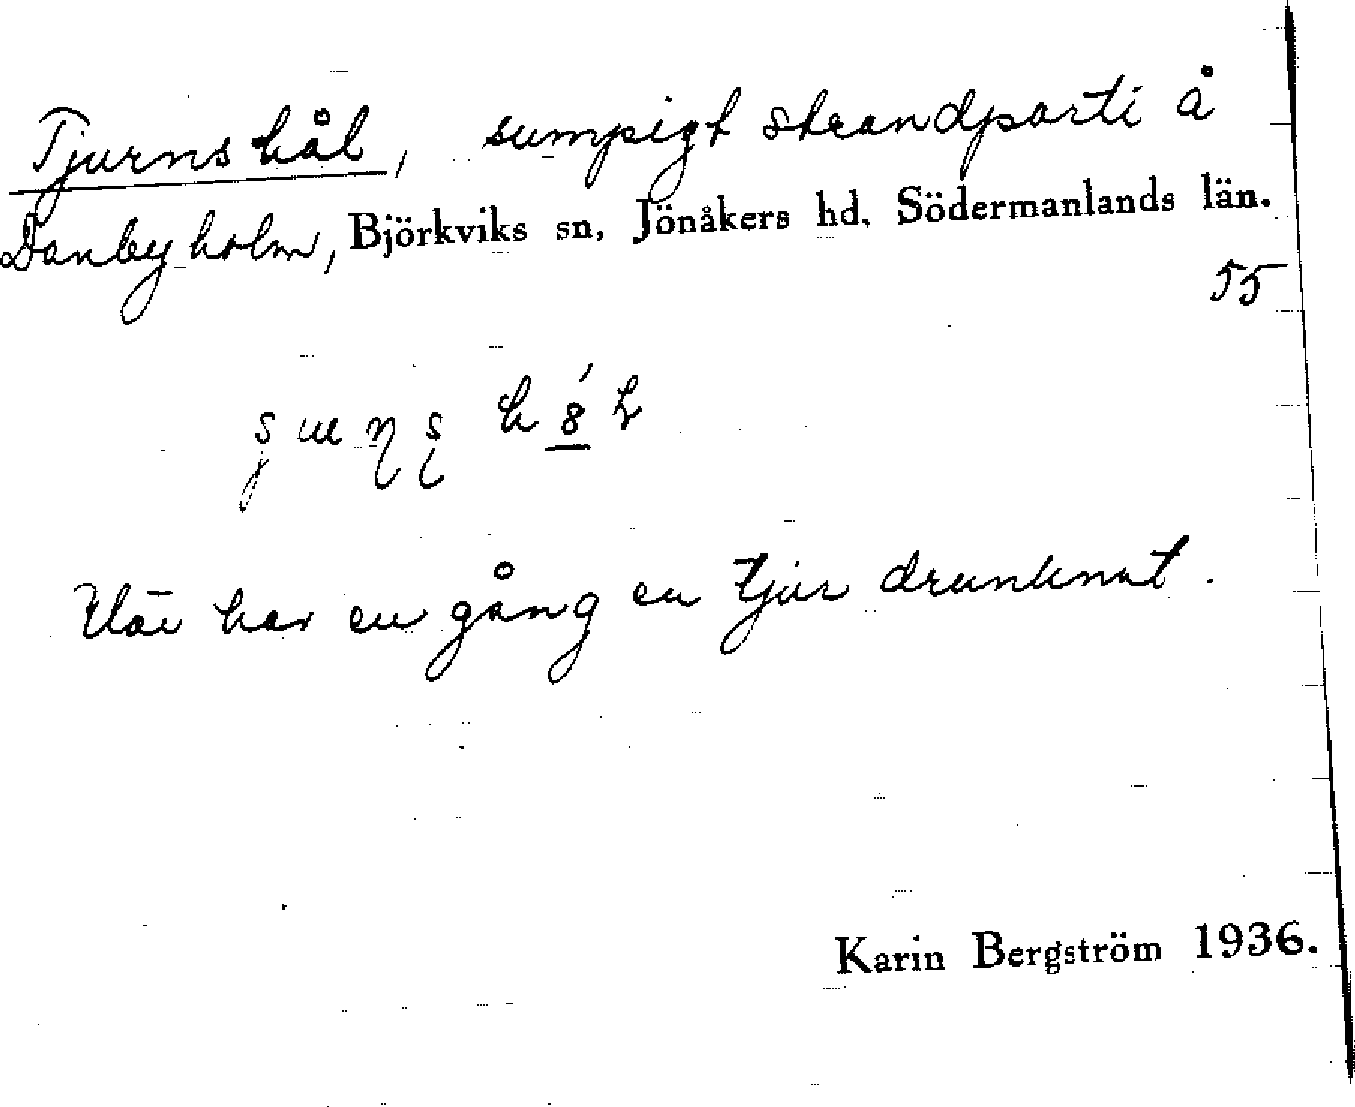 Tjurns hål, sumpigt strandparti å
Danbyholm, Björkviks sn, Jönåkers hd, Södermanlands län.
55
Här har en gång en tjur drunknat.
Karin Bergström 1936.